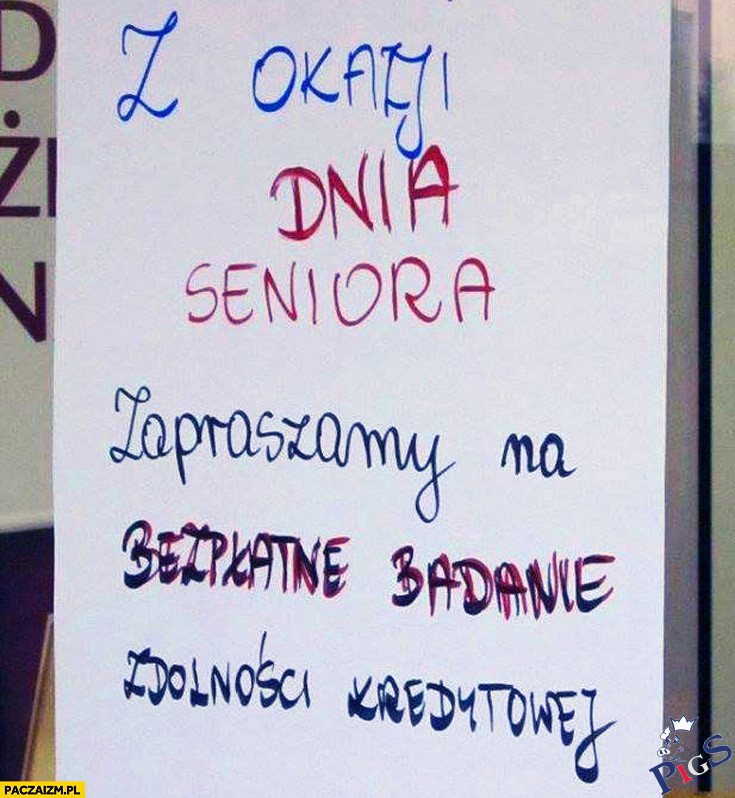 Z OKAZJI
DNIA
SENIORA
Zapraszamy na
BEZPŁATNE BADANIE
ZDOLNOŚCI KREDYTOWEJ
PIGS
PACZAIZM.PL